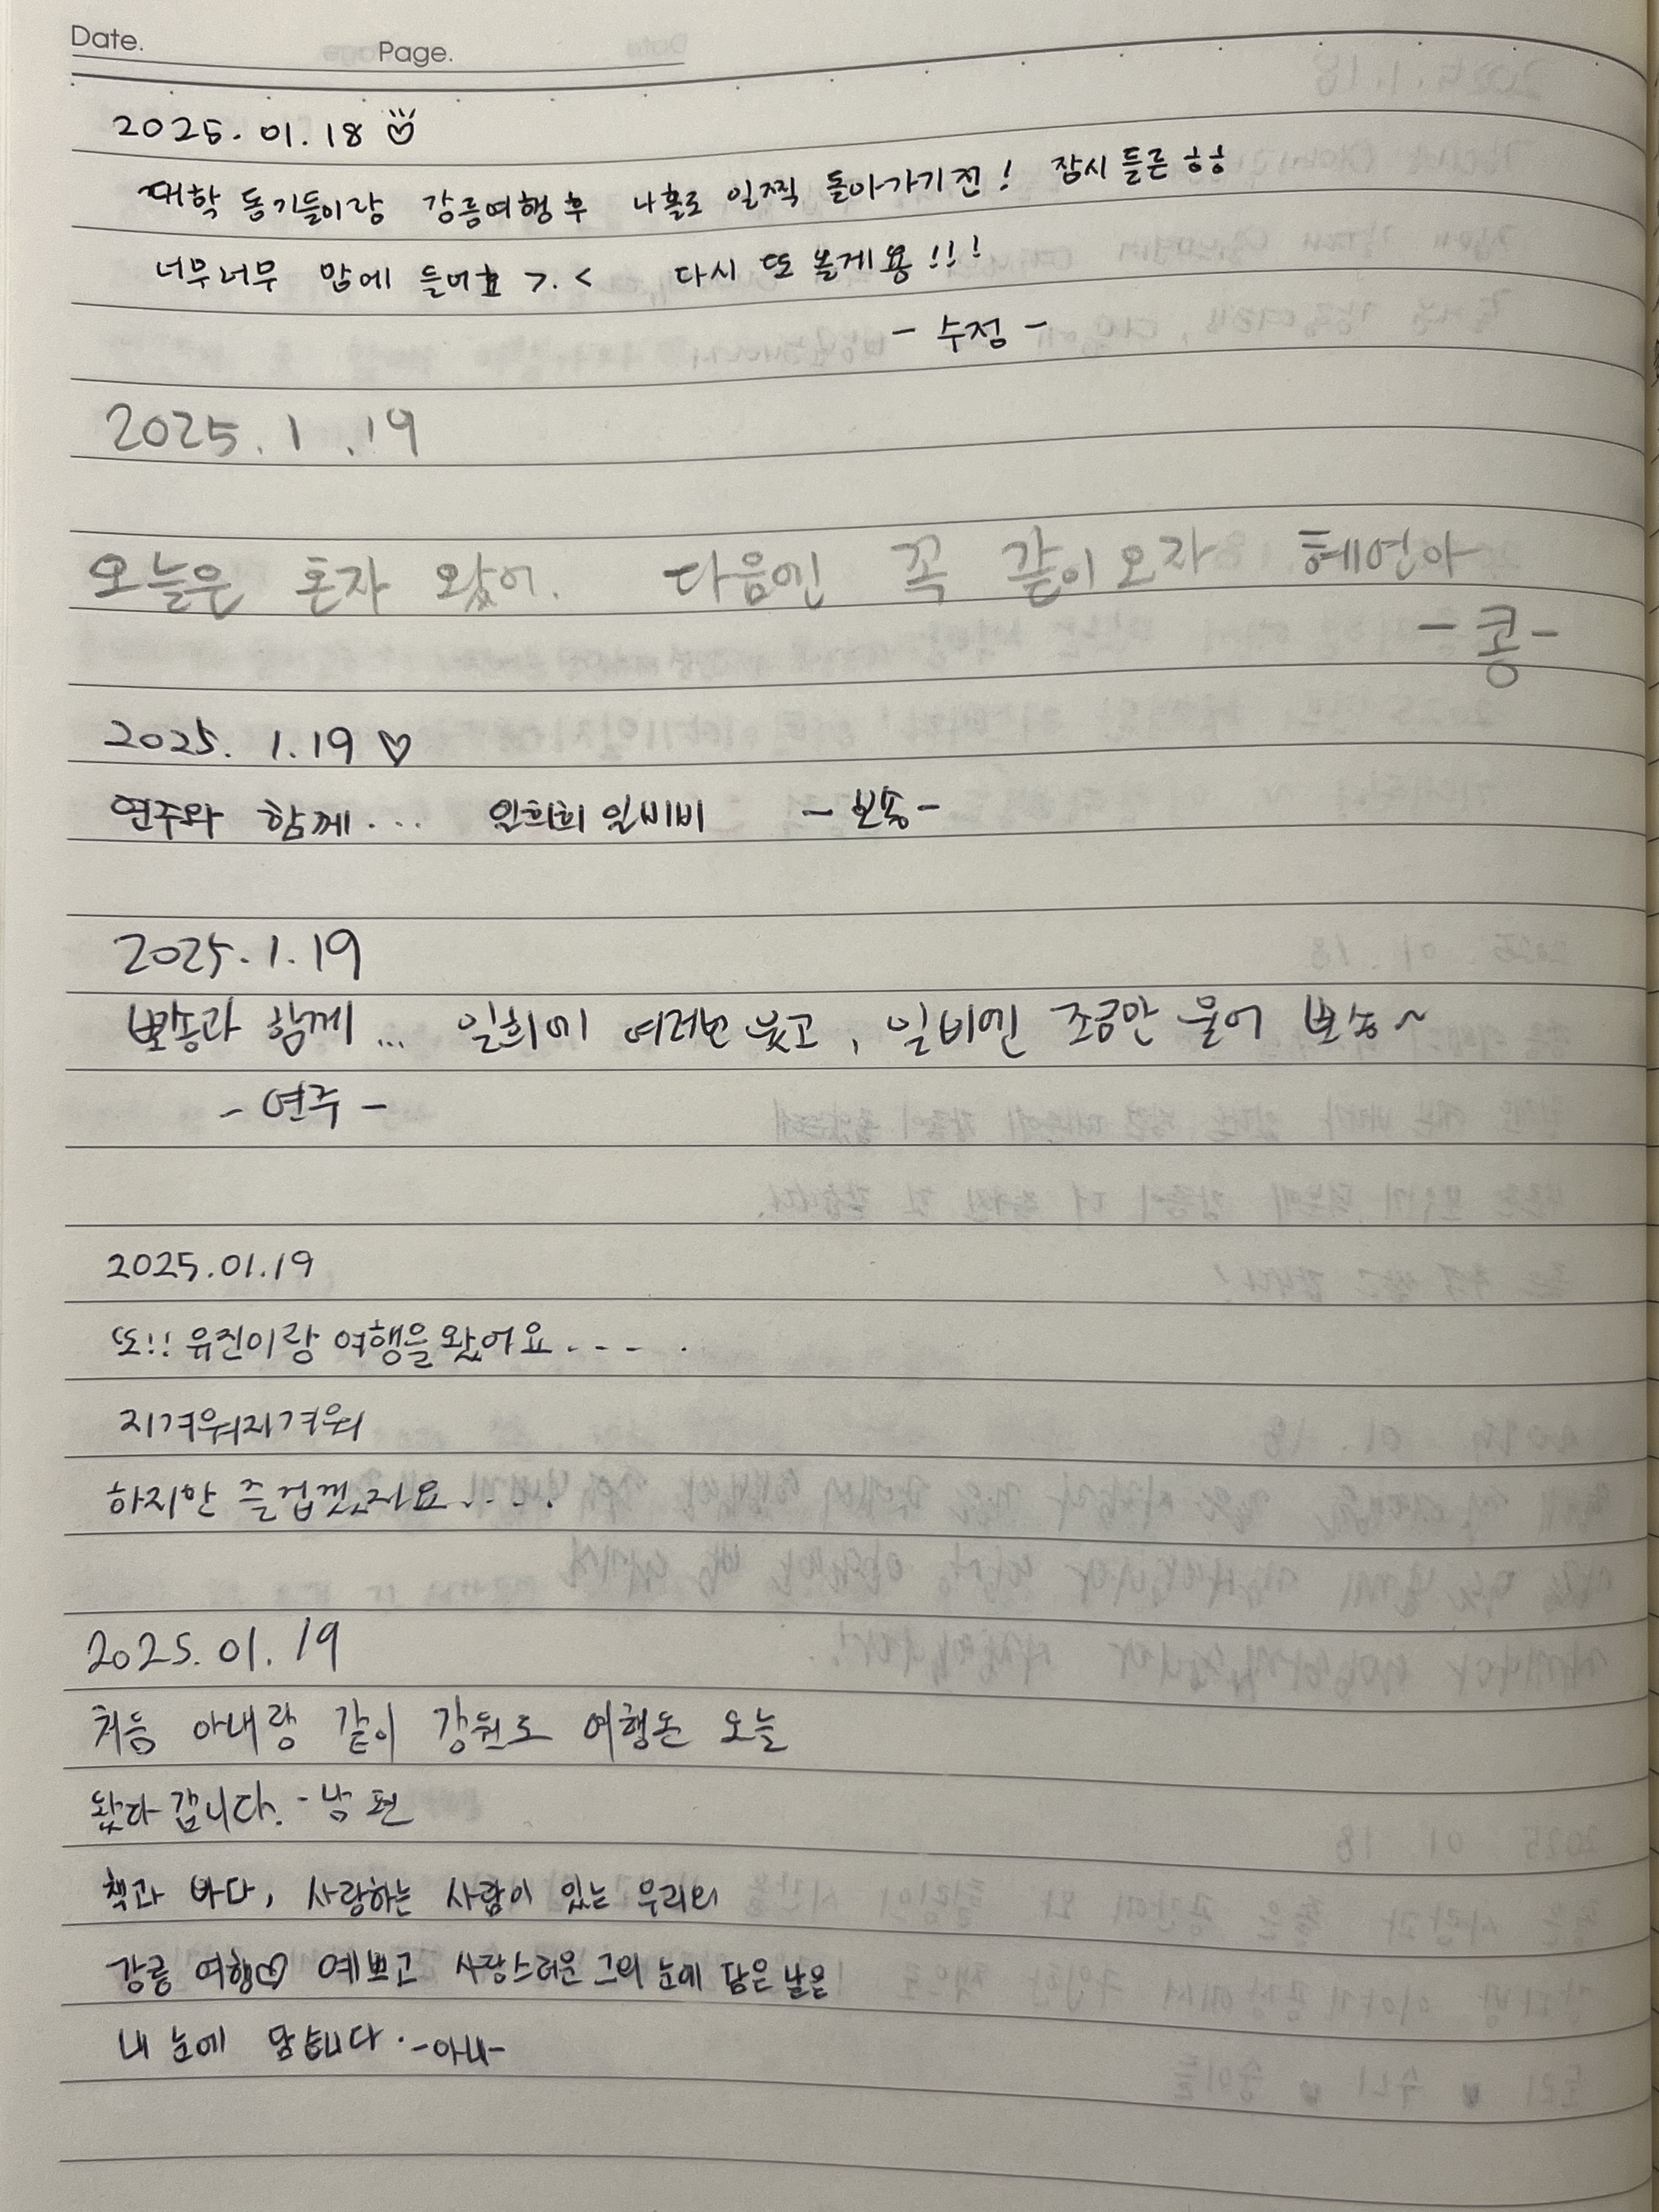 Date.
Page.
2025. 01. 18
대학 동기들이랑 강릉여행 후 나홀로 일찍 돌아가기전! 잠시 들른 ㅎㅎ
너무너무 맘에 들어요 >.< 다시 또 올게용!!!
- 수정 -
2025. 1. 19
오늘은 혼자 왔어. 다음엔 꼭 같이오자 혜연아
- 콩 -
2025. 1. 19 ♡
연주와 함께... 일희희 일비비 - 뽀송 -
2025. 1. 19
뽀송과 함께... 일희에 여러번 웃고, 일비엔 조금만 울어 뽀송~
- 연주 -
2025.01.19
또!! 유진이랑 여행을 왔어요.....
지겨워지겨워
하지만 즐겁겠지요....
2025. 01. 19
처음 아내랑 같이 강원도 여행온 오늘
왔다 갑니다. - 남편
책과 바다, 사랑하는 사람이 있는 우리의
강릉 여행♡ 예쁘고 사랑스러운 그의 눈에 담은 날은
내 눈에 담습니다. -아내-